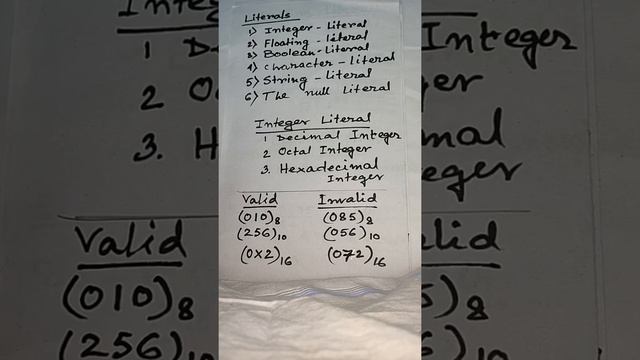 Literals
1) Integer - Literal
2) Floating - literal
3) Boolean - Literal
4) Character - Literal
5) String - Literal
6) The null Literal
Integer Literal
1 Decimal Integer
2 Octal Integer
3. Hexadecimal
Integer
Valid Invalid
(010)8 (085)8
(256)10 (056)10
(0X2)16 (072)16